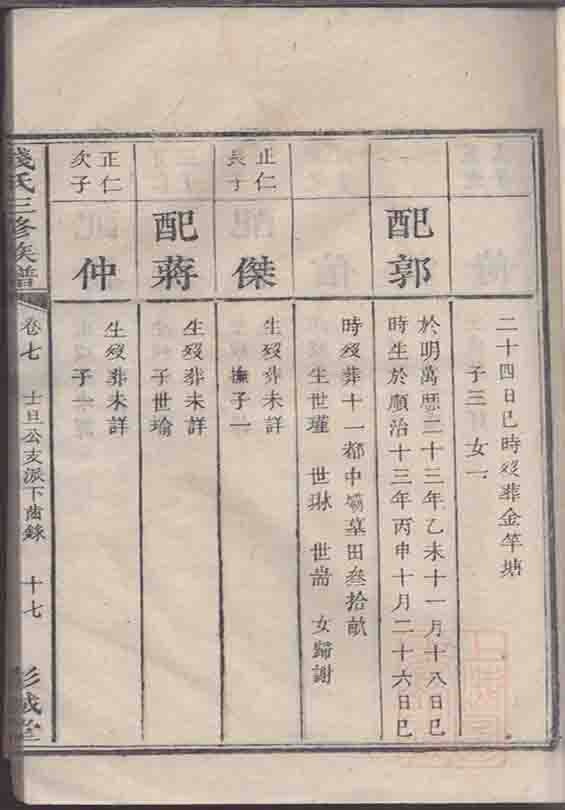 二十四日巳時歿葬金竿塘
子三 女一
配郭
於明萬歷二十三年乙未十一月十八日巳
時生於順治十三年丙申十月二十六日巳
時歿葬十一都中塥墓田叁拾畝
生世瑾 世琳 世喬 女歸謝
正仁
長子
傑
生歿葬未詳
撫子一
配蔣
生歿葬未詳
子世瑜
正仁
次子
仲
生歿葬未詳
子一
錢氏三修族譜
卷七
士旦公支派下齒錄
十七
彭城堂